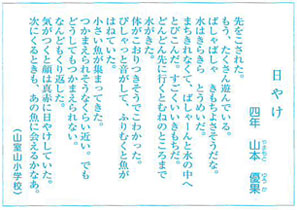 日やけ
四年 山本 優果
先をこされた。
もう、たくさん遊んでいる。
ばしゃばしゃ きもちよさそうだな。
水はきらきら とうめいだ。
まちきれなくて、ばしゃーんと水の中へ
とびこんだ。すごくいいきもちだ。
どんどん先に行くとむねのところまで
水がきた。
体がこおりつきそうでこわかった。
ぴしゃっと音がして、ふりむくと魚が
はねていた。
小さい魚が集まってきた。
つかまえられそうなくらい近い。でも
どうしてもつかまえられない。
なんどもくり返した。
気がつくと顔は真赤に日やけしていた。
次にくるときも、あの魚に会えるかなあ。
(山室山小学校)